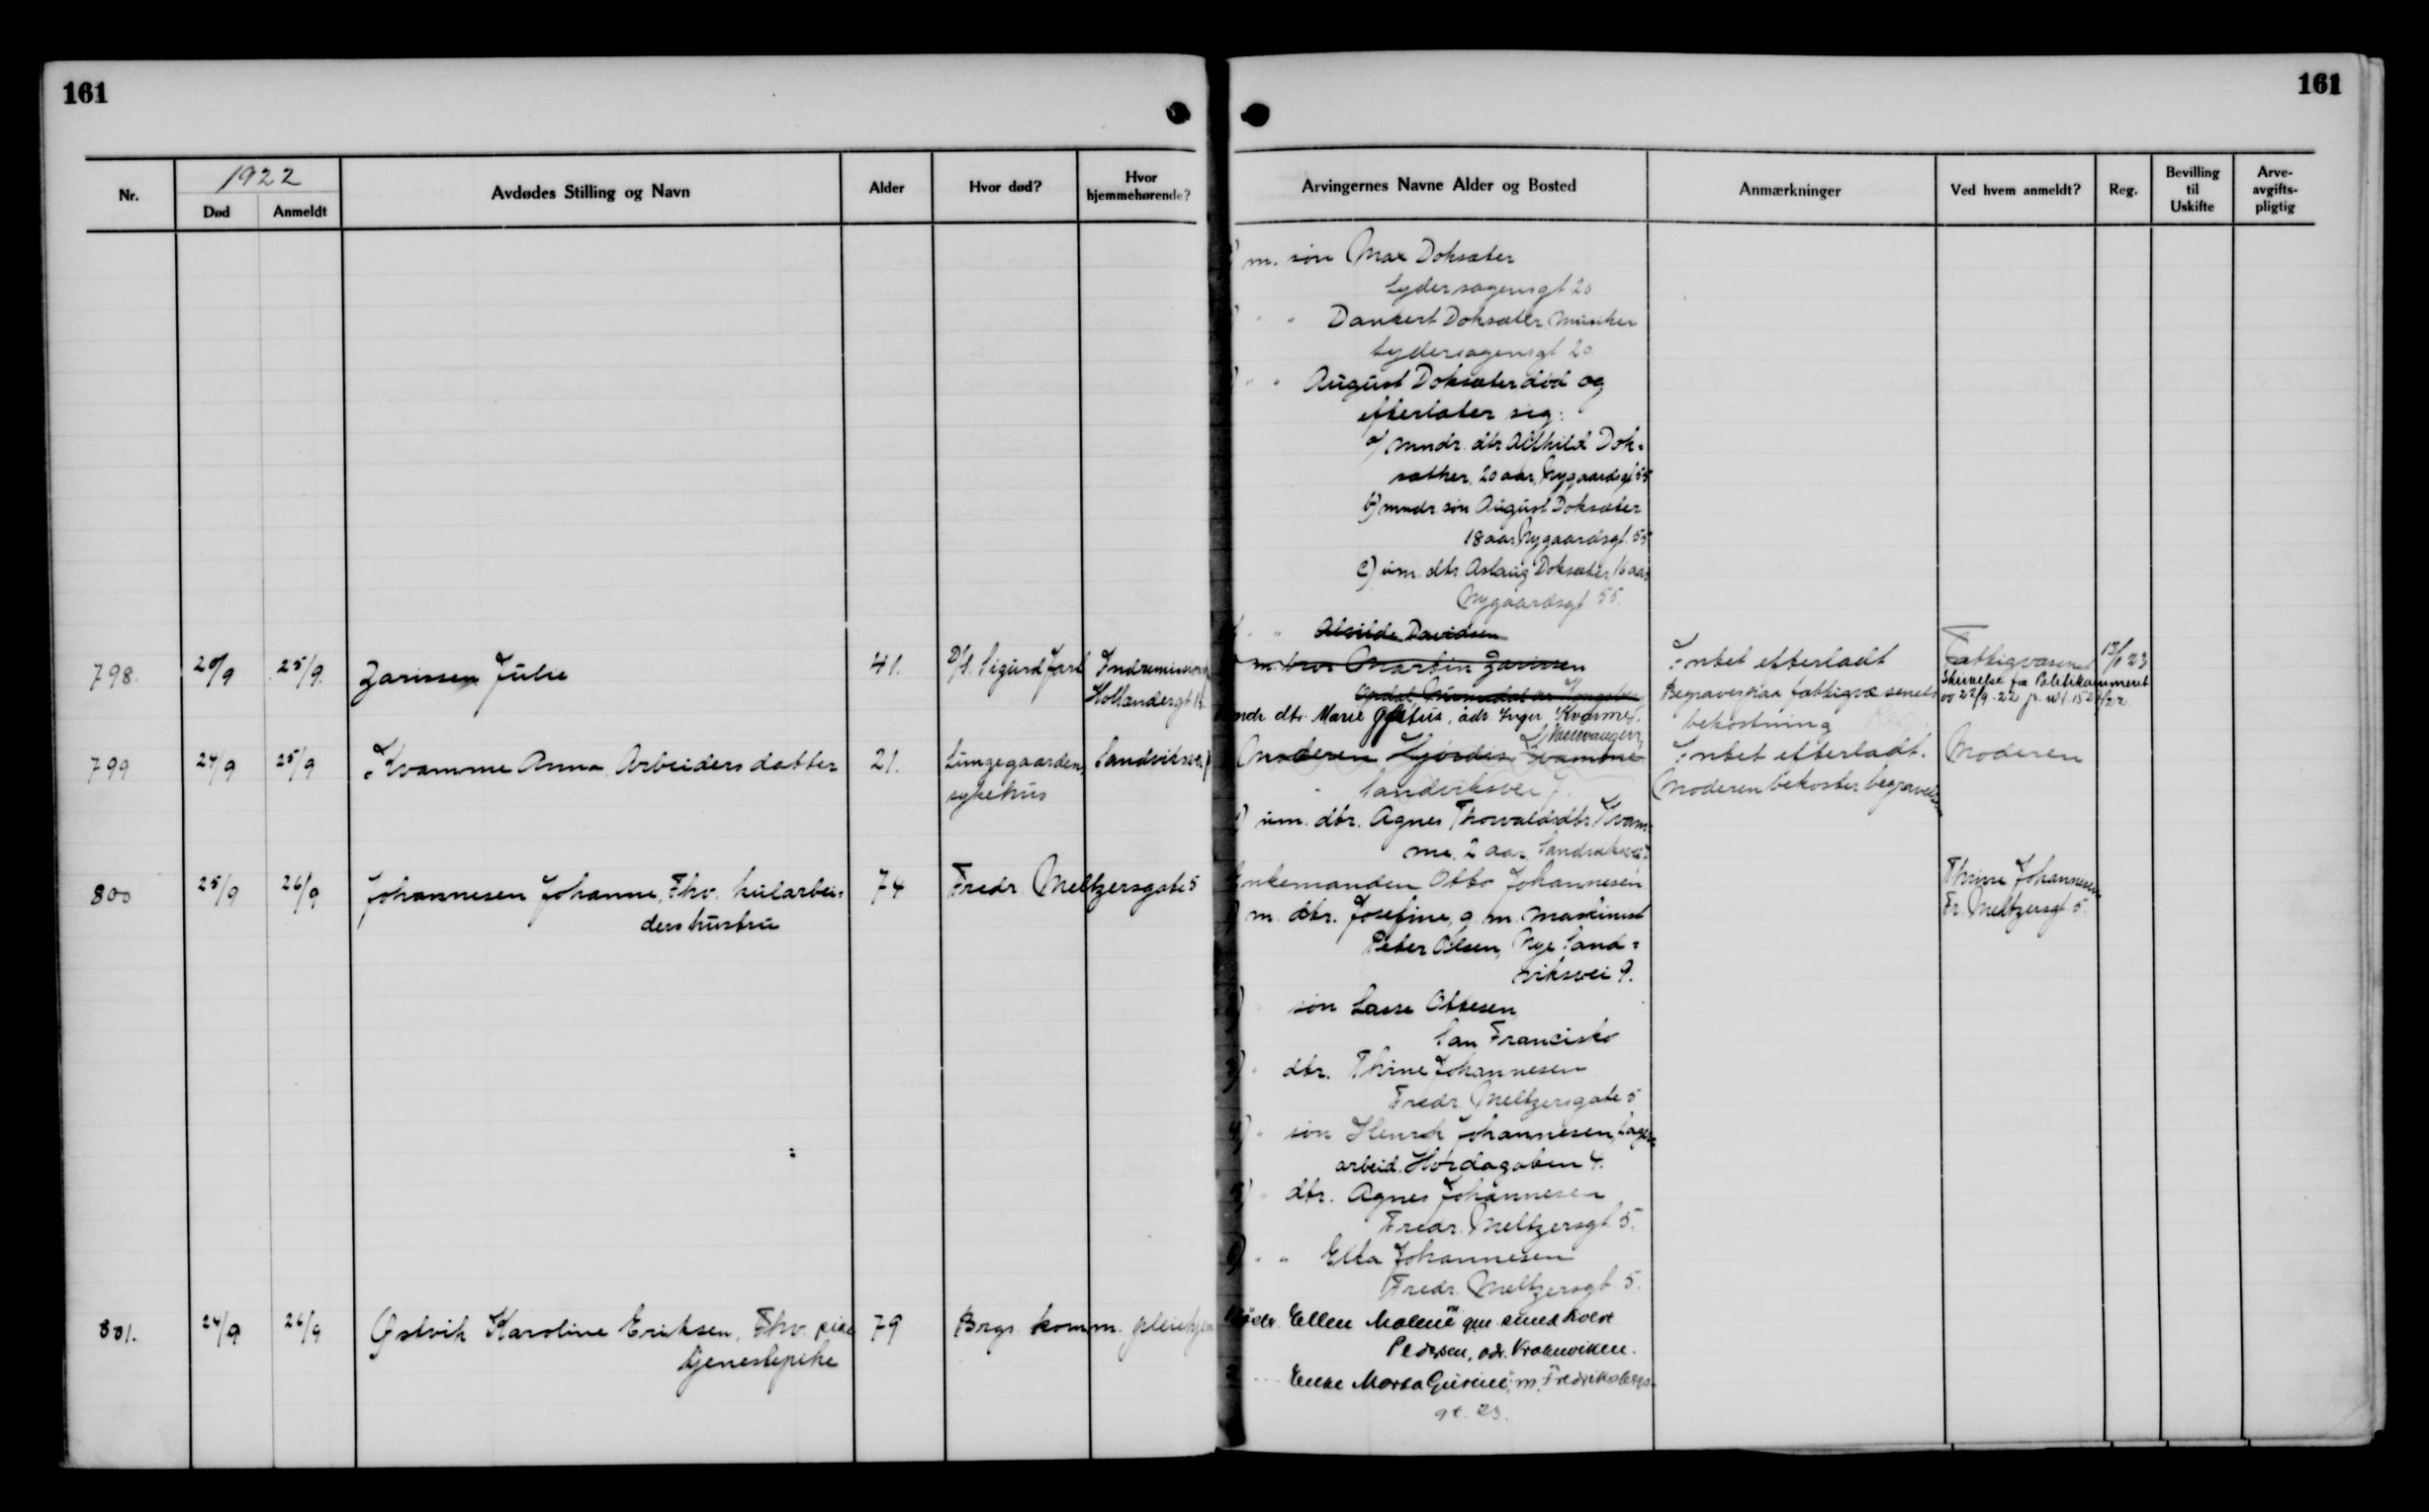 161
161
Nr.
1922
Død
Anmeldt
Avdødes Stilling og Navn
Alder
Hvor død?
Hvor hjemmehørende?
Arvingernes Navne Alder og Bosted
Anmærkninger
Ved hvem anmeldt?
Reg.
Bevilling til Uskifte
Arve-avgifts-pligtig
m. søn Max Doksæter
Lydersagensgt 20
" " Dankert Doksæter, musiker
Lydersagensgt 20
" " August Doksæter død og
efterlater sig:
a) mndr. dtr. Alfhild Dok-
sæther, 20 aar, Nygaardsgt 55
b) mndr. søn August Doksæter
18 aar Nygaardsgt. 55
c) um. dtr. Aslaug Doksæter, 16 aar
Nygaardsgt. 55.
" " Alvilde Davidsen
798. 20/9 25/9. Zarissen Julie 41. D/S. Sigurd Jarl Indremissionsh
Hollendergt 15.
m. bror Martin Zarissen
mdr. dtr. Marie, adr. Inger Kvamme,
Intet efterladt
Begraves paa fattigvæsenets
bekostning
Fattigvæsenet
Skrivelse fra Politikammeret
av 22/9-22
13/1 23
799 24/9 25/9 Kvamme Anna, Arbeiders datter 21. Lungegaardens
sykehus
Sandviksv. 7
Moderen Hjørdis Kvamme
Sandviksvei 7.
1) um. dtr. Agnes Thorvaldsdtr. Kvam-
me, 2 aar, Sandviksvei 7
Intet efterladt.
Moderen bekoster begravelsen
Moderen
800 25/9 26/9 Johannesen Johanne, Fhv. kularbei-
ders hustru
74 Fredr. Meltzersgate 5
Enkemanden Otto Johannesen
m. dtr. Josefine, g. m. maskinist
Peter Olsen, Nye Sand-
viksvei 9.
2) " søn Lasse Ottesen
San Francisko
3) " dtr. Thrine Johannesen
Fredr. Meltzersgate 5
4) " søn Henrik Johannesen, lager-
arbeid. Hordagaten 4.
5) " dtr. Agnes Johannesen
Fredr. Meltzersgt. 5.
6) " " Ella Johannesen
Fredr. Meltzersgt. 5.
Thrine Johannesen
Fr. Meltzersgt. 5.
801. 24/9 26/9 Østvik Karoline Eriksen, Fhv. pike
tjenestepike
79 Brgs. komm. pleiehjem
Ellen Malene
Pedersen, adr.
Enke Marta Gurine, Fredriksbergs-
gt. 23.